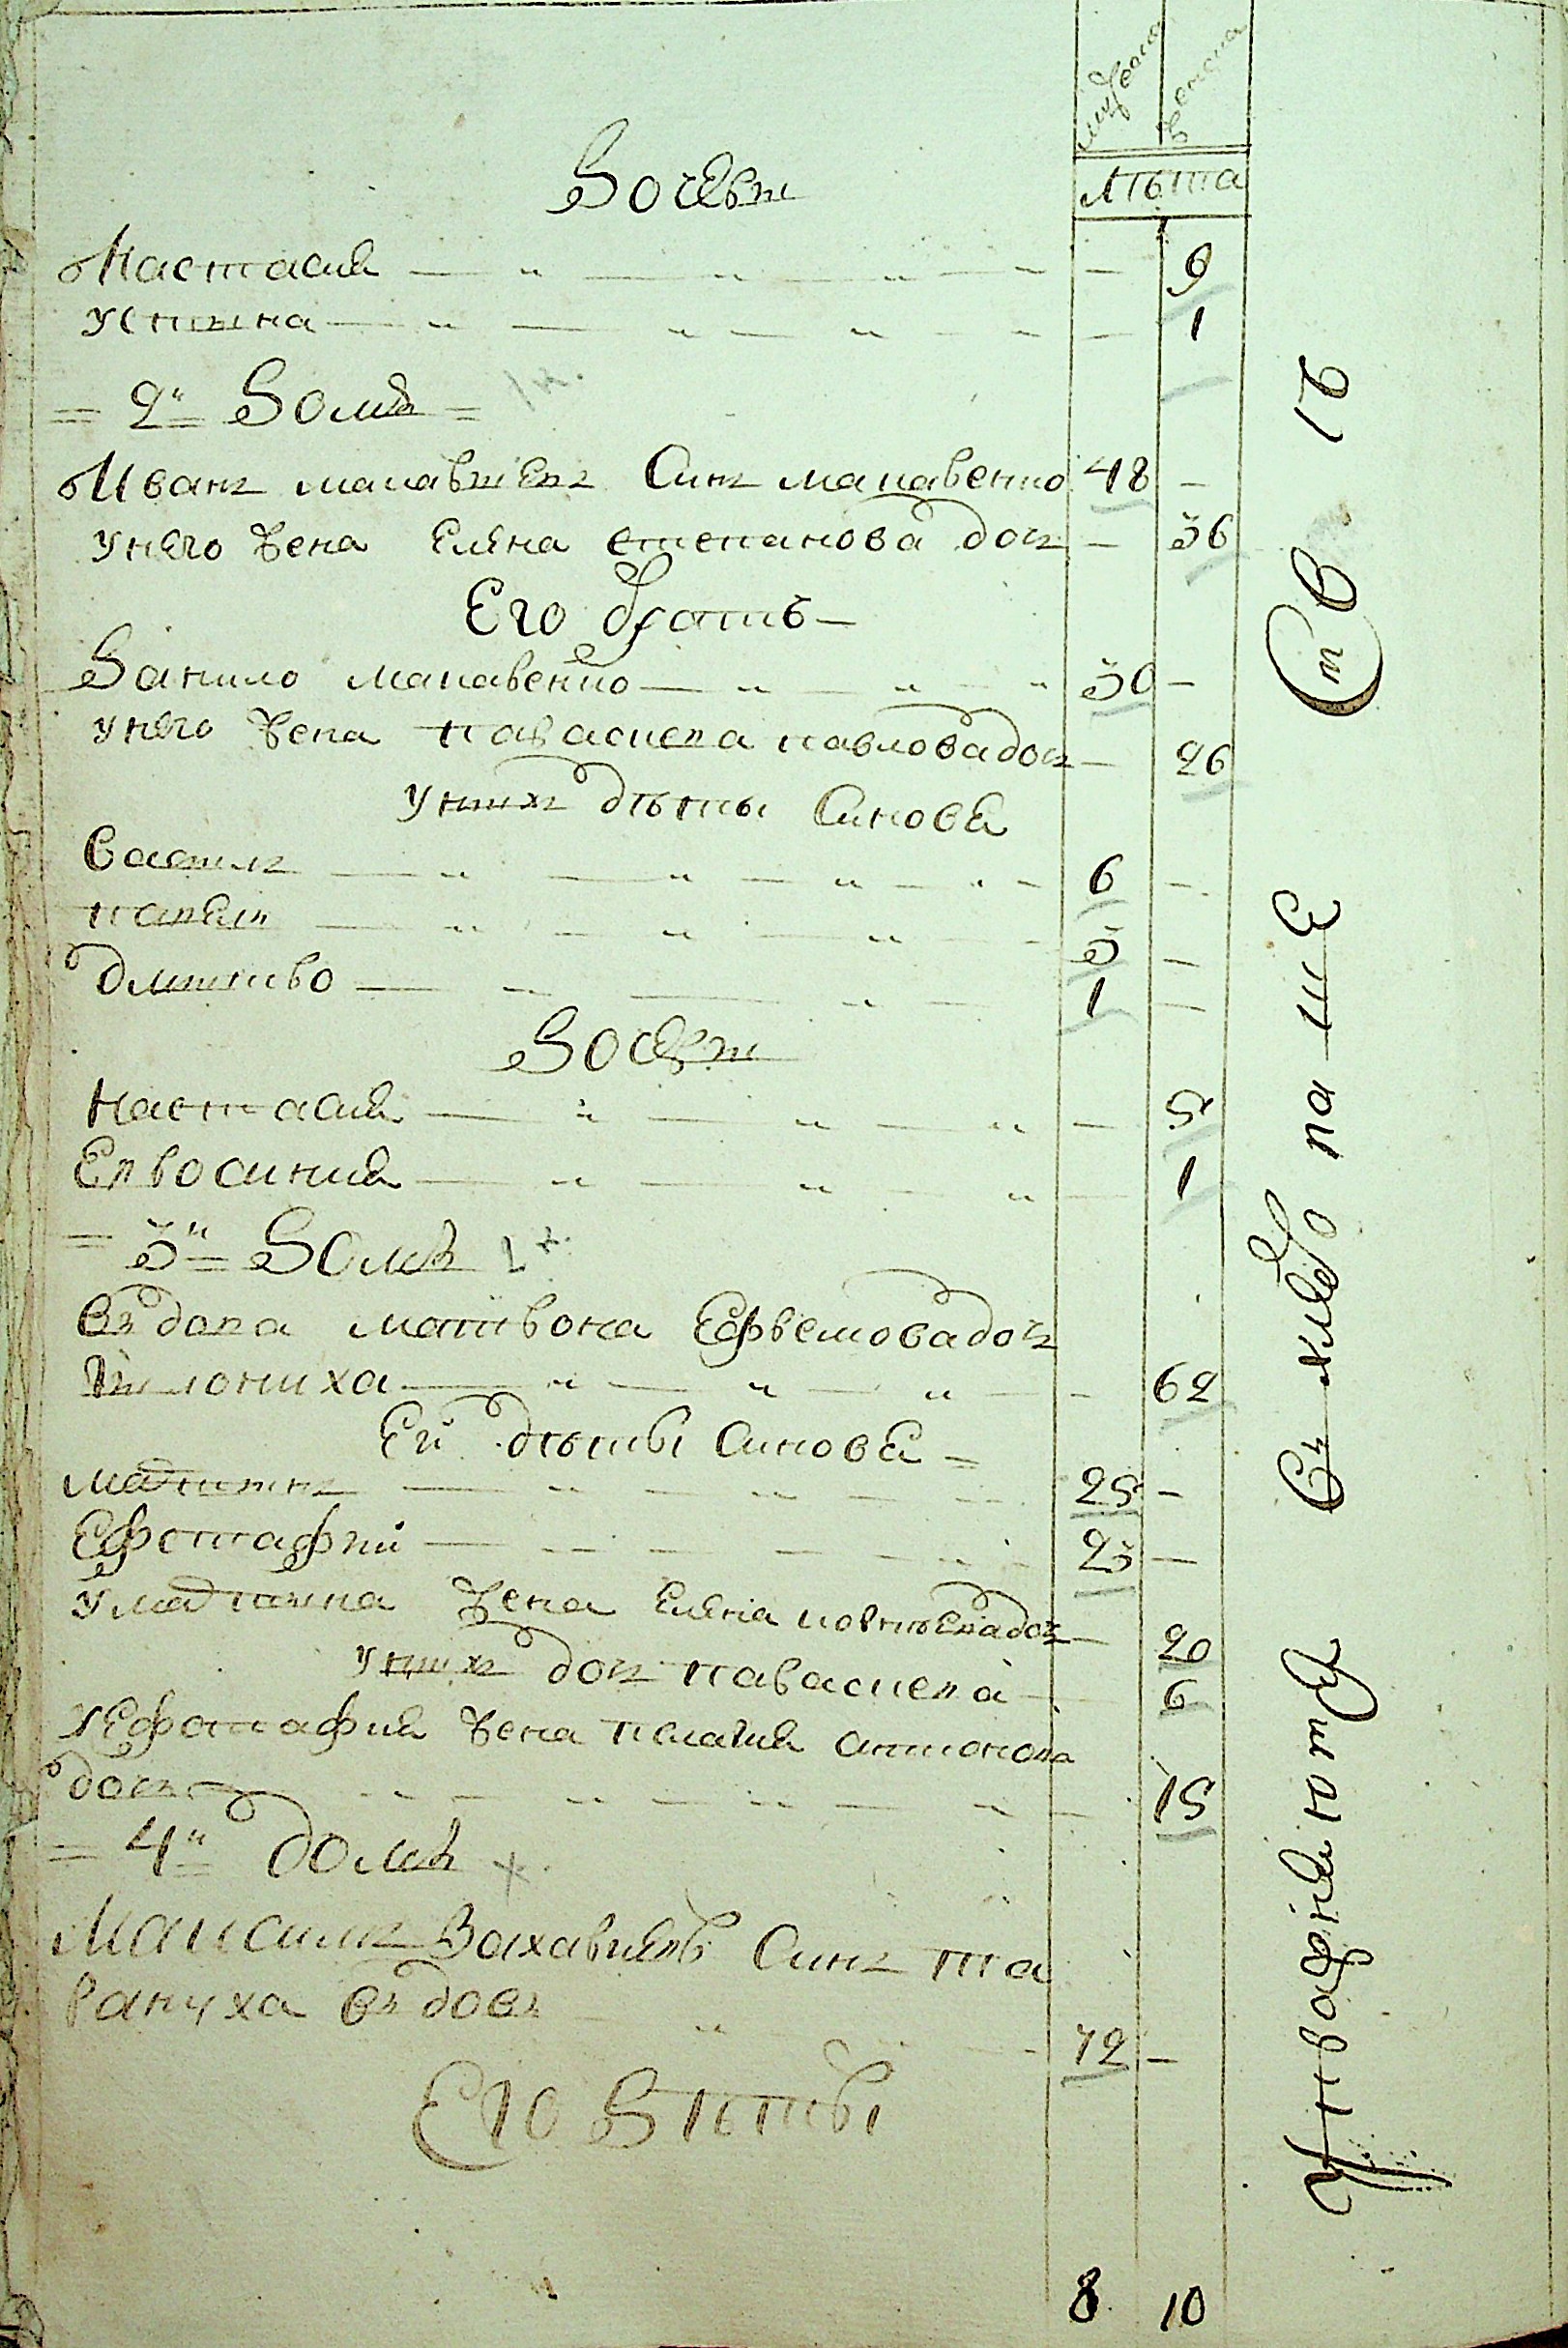 мужеска женска
лѣта
Дочери
Настасия — 9
Устина — 1
= 2й Домъ =
Иванъ макариевъ Синъ макаренко 48 —
у него жена Елена степанова дочъ — 36
Его братъ —
Данило макаренко — 30 —
у него жена параскева павлова дочъ — 26
у нихъ дѣти Синове
Василъ — 6 —
павелъ — 3 —
дмитро — 1 —
Дочери
Настасия — 5
Евросиния — 1
= 3й Домъ
въдова матрона Ефремова дочъ
62
Ей дѣти Синове =
мартинъ — 25 —
Ефстафий — 23 —
у мартина жена Елена дочъ — 20
у нихъ дочъ параскева — 6
у Ефстафия жена пелагия антонова
дочъ — 15
= 4й домъ
Максимъ Захариевъ Синъ та
рануха въдовъ 72 —
Его Дѣти
8 10
21